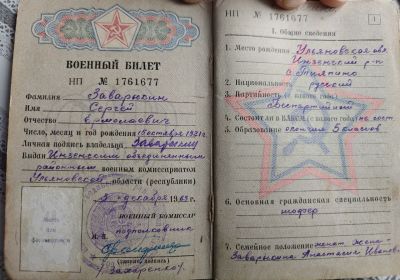 ВОЕННЫЙ БИЛЕТ
НП № 1761677
Фамилия Заварыкин
Имя Сергей
Отчество
Число, месяц и год рождения 1921г.
Личная подпись владельца
Выдан Инзенским объединенным
районным военным комиссариатом
Ульяновской области (республики)
декабря 1963г.
Место
для
фотокарточки
военный комиссар
М. П.
подполковник
НП № 1761677
1
I. Общие сведения
1. Место рождения Ульяновская обл.
Инзенский р-н
с. Тияпино
2. Национальность русский
3. Партийность (с какого года)
Беспартийный
4. Состоит ли в ВЛКСМ (с какого года) не сост.
5. Образование окончил 5 классов
6. Основная гражданская специальность
шофер
7. Семейное положение женат жена-
Заварыкина Анастасия Ивановна